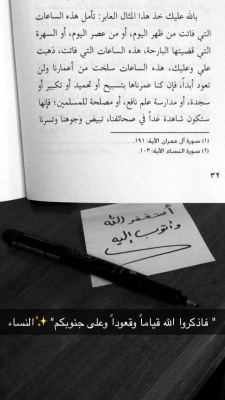 بالله عليك خذ هذا المثال العابر: تأمل هذه الساعات
التي فاتت من ظهر اليوم، أو من عصر اليوم، أو السهرة
التي قضيتها البارحة، هذه الساعات التي فاتت، ذهبت
علي وعليك، هذه الساعات سلخت من أعمارنا ولن
تعود أبداً، فإن كنا عمرناها بتسبيح أو تحميد أو تكبير أو
سجدة، أو مدارسة علم نافع، أو مصلحة للمسلمين؛ فإنها
ستكون شاهدة غداً في صحائفنا، تبيض وجوهنا وتسرنا
(١) سورة آل عمران الآية: ١٩١.
(٢) سورة النساء الآية: ١٠٣.
٣٢
أستغفر الله
وأتوب إليه
" فاذكروا الله قياماً وقعوداً وعلى جنوبكم"✨النساء